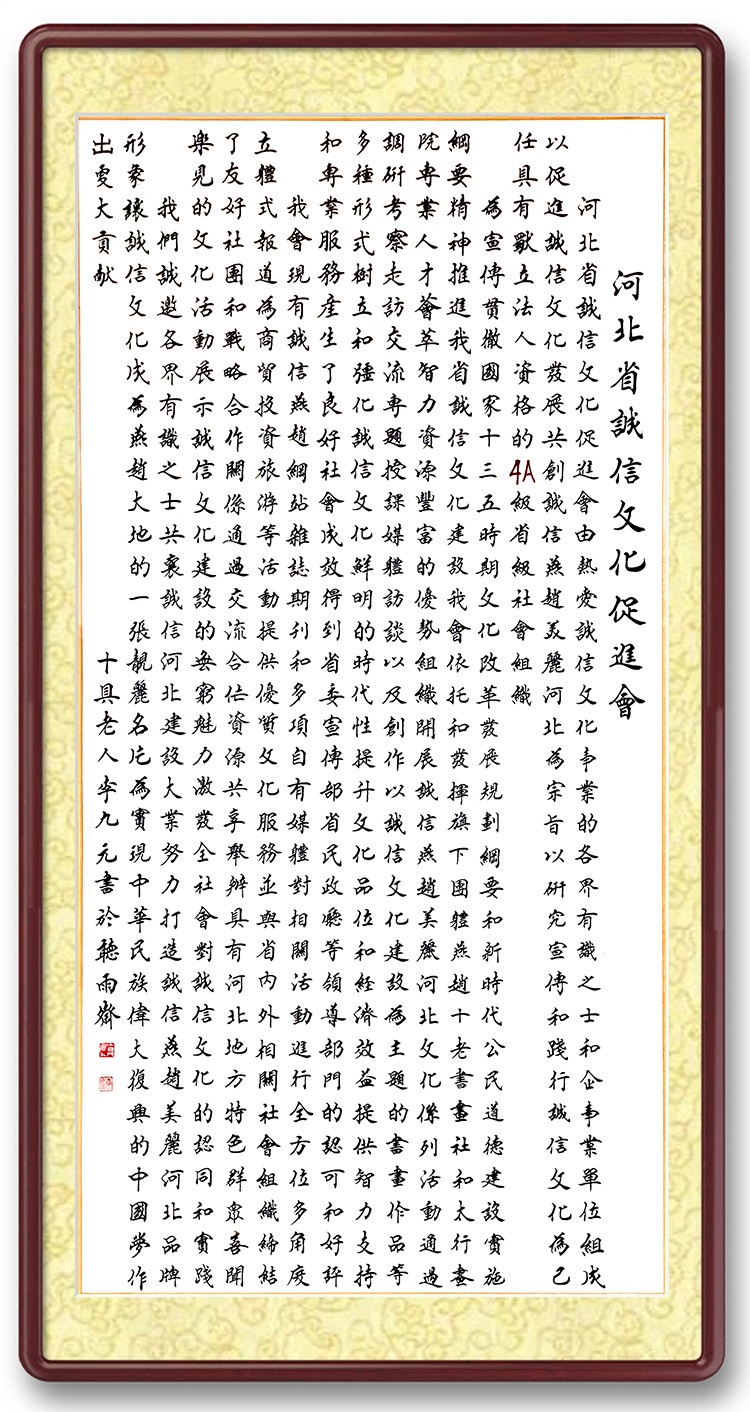 河北省誠信文化促進會
河北省誠信文化促進會由熱愛誠信文化事業的各界有識之士和企事業單位組成
以促進誠信文化發展共創誠信燕趙美麗河北為宗旨以研究宣傳和踐行誠信文化為己
任具有獨立法人資格的4A級省級社會組織
為宣傳貫徹國家十三五時期文化改革發展規劃綱要和新時代公民道德建設實施
綱要精神推進我省誠信文化建設我會依托和發揮旗下團體燕趙十老書畫社和太行畫
院專業人才薈萃智力資源豐富的優勢組織開展誠信燕趙美麗河北文化係列活動通過
調研考察走訪交流專題授課媒體訪談以及創作以誠信文化建設為主題的書畫作品等
多種形式樹立和強化誠信文化鮮明的時代性提升文化品位和經濟效益提供智力支持
和專業服務產生了良好社會成效得到省委宣傳部省民政廳等領導部門的認可和好評
我會現有誠信燕趙網站雜誌期刊和多項自有媒體對相關活動進行全方位多角度
立體式報道為商貿投資旅游等活動提供優質文化服務並與省內外相關社會組織締結
了友好社團和戰略合作關係通過交流合作資源共享舉辦具有河北地方特色群眾喜聞
樂見的文化活動展示誠信文化建設的無窮魅力激發全社會對誠信文化的認同和實踐
我們誠邀各界有識之士共襄誠信河北建設大業努力打造誠信燕趙美麗河北品牌
形象讓誠信文化成為燕趙大地的一張靚麗名片為實現中華民族偉大復興的中國夢作
出更大貢献
十具老人李九元書於聽雨齋